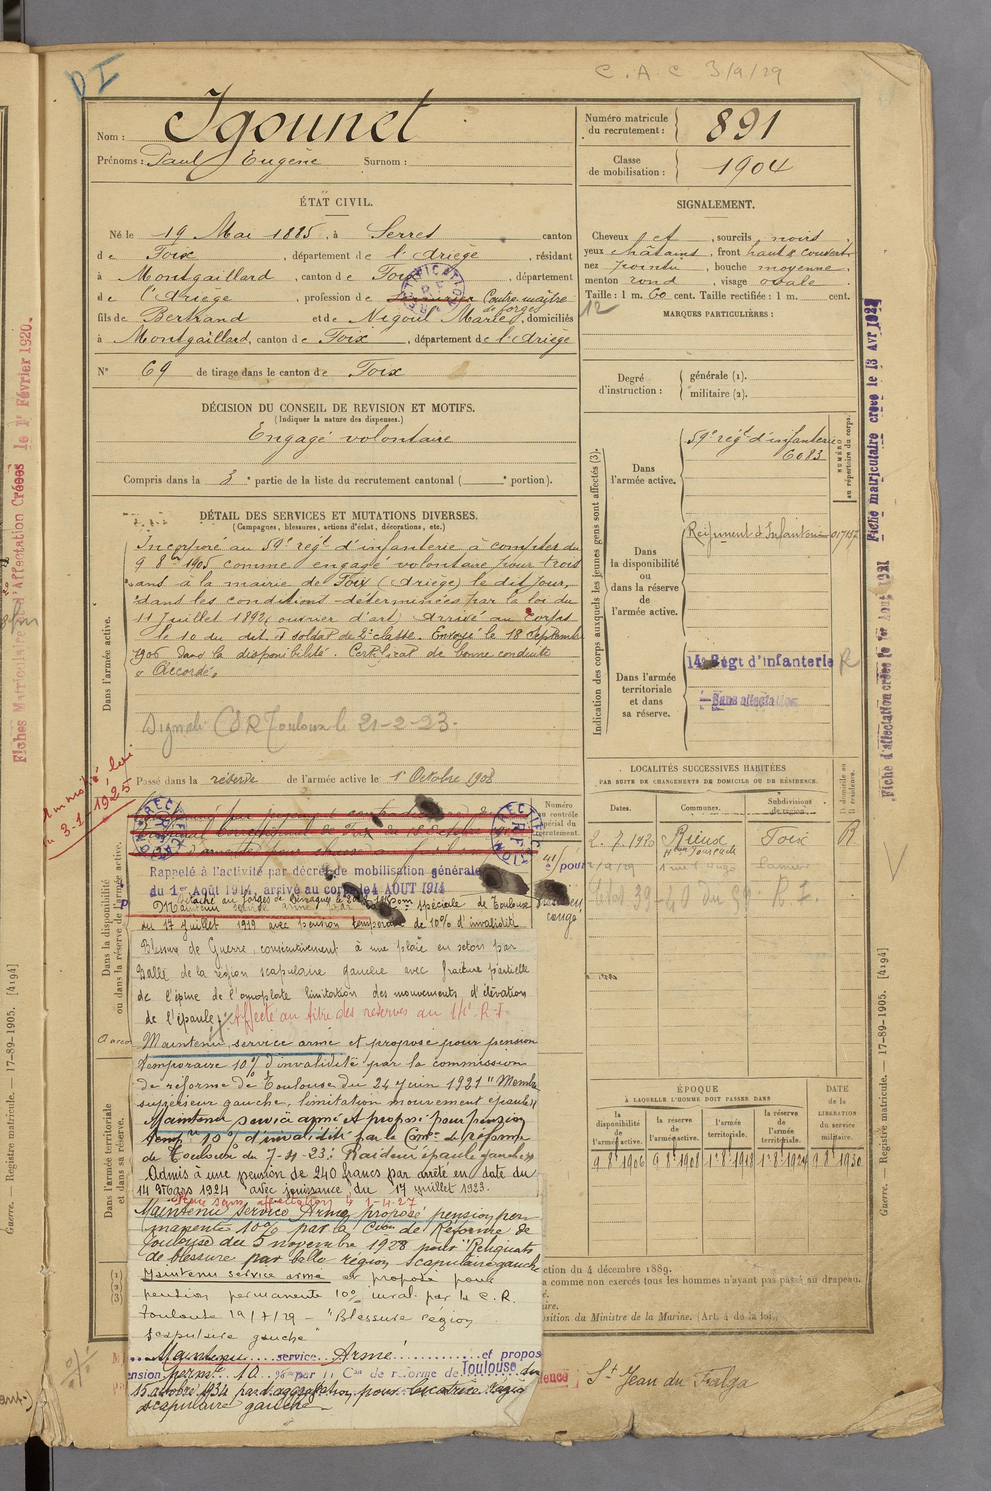 D I
C. A. C 3/9/29
Nom : Igounet
Prénoms : Paul Eugène Surnom :
Numéro matricule du recrutement : 891
Classe de mobilisation : 1904
ÉTAT CIVIL.
Né le 19 Mai 1885, à Serres canton
de Foix, département de l'Ariège, résidant
à Montgaillard, canton de Foix, département
de l'Ariège, profession de Contre-maître de forges
fils de Bertrand et de Nigoul Marie, domiciliés
à Montgaillard, canton de Foix, département de l'Ariège
N° 69 de tirage dans le canton de Foix
DÉCISION DU CONSEIL DE REVISION ET MOTIFS.
(Indiquer la nature des dispenses.)
Engagé volontaire
Compris dans la 3e partie de la liste du recrutement cantonal ( e portion).
DÉTAIL DES SERVICES ET MUTATIONS DIVERSES.
(Campagnes, blessures, actions d'éclat, décorations, etc.)
Dans l'armée active.
Incorporé au 59e régt d'infanterie à compter du
9 8bre 1905 comme engagé volontaire pour trois
ans à la mairie de Foix (Ariège) le dit jour,
dans les conditions déterminées par la loi du
11 Juillet 1892 (ouvrier d'art) Arrivé au Corps
le 10 du dit, soldat de 2e classe. Envoyé le 18 Septembre
1906 dans la disponibilité. Certificat de bonne conduite
"Accordé"
Signalé CSR Toulouse le 21-2-23.
Passé dans la réserve de l'armée active le 1er Octobre 1908
Amnistié, loi
du 3-1-1925
Dans la disponibilité ou dans la réserve de l'armée active.
RECTIFICATION R F
Rappelé à l'activité par décret de mobilisation générale
du 1er Août 1914, arrivé au corps le 4 AOUT 1914
Maintenu service armé par spéciale de Toulouse
du 17 juillet 1919 avec pension temporaire de 10% d'invalidité
Blessure de Guerre, consécutivement à une plaie en séton par
Balle de la région scapulaire gauche avec fracture partielle
de l'épine de l'omoplate limitation des mouvements d'élévation
de l'épaule. Affecté au titre des réserves au 14e R.I.
Maintenu service armé et proposé pour pension
temporaire 10% d'invalidité par la commission
de réforme de Toulouse du 24 Juin 1921 "Membre
supérieur gauche, limitation mouvement épaule"
Maintenu service armé et proposé pour pension
tempre 10% d'invalidité par la Comon de Réforme
de Toulouse du 7-11-23: Raideur épaule gauche
Admis à une pension de 240 francs par arrêté en date du
14 Mars 1924 avec jouissance du 17 juillet 1923.
sans affectation le 1-4-27
Maintenu service Armé, proposé pension per
manente 10% par la Con de Réforme de
Toulouse du 5 novembre 1928 pour "Reliquats
de blessure par balle région scapulaire gauche
Maintenu service armé et proposé pour
pension permanente 10% inval. par la C.R.
Toulouse 19/7/29 - "Blessure région
scapulaire gauche"
Maintenu service Armé et propos
ension permte 10 % par la Con de réforme de Toulouse du
15 octobre 1934 pour cicatrice région
scapulaire gauche
Dans l'armée territoriale et dans sa réserve.
Numéro au contrôle spécial du recrutement.
SIGNALEMENT.
Cheveux et, sourcils noirs
yeux châtains, front haut & couvert
nez pointu, bouche moyenne
menton rond, visage ovale
Taille : 1 m. 60 cent. Taille rectifiée : 1 m. cent.
12
MARQUES PARTICULIÈRES :
Degré d'instruction : générale (1). militaire (2).
Indication des corps auxquels les jeunes gens sont affectés (3).
NUMÉRO au répertoire du corps.
Dans l'armée active.
59e régt d'infanterie
6083
Dans la disponibilité ou dans la réserve de l'armée active.
Régiment d'Infanterie 017157
Dans l'armée territoriale et dans sa réserve.
14e Régt d'infanterie R
Sans affectation
LOCALITÉS SUCCESSIVES HABITÉES
PAR SUITE DE CHANGEMENTS DE DOMICILE OU DE RÉSIDENCE.
Dates. Communes. Subdivisions de région. D domicile ou R résidence.
2.7.1920 Rieux Foix R
ÉPOQUE
À LAQUELLE L'HOMME DOIT PASSER DANS
la disponibilité de l'armée active. la réserve de l'armée active. l'armée territoriale. la réserve de l'armée territoriale.
DATE de la LIBÉRATION DU service militaire.
9 8bre 1906 9 8bre 1908 1er 8bre 1918 1er 8bre 1924 9 8bre 1930
ction du 4 décembre 1889.
a comme non exercés tous les hommes n'ayant pas passé au drapeau.
osition du Ministre de la Marine. (Art. 4 de la loi.)
St Jean du Falga
Fiche matriculaire créée le 13 Avr 1921
Fiche d'affectation créée le 1er Aout 1921
Fiches Matriculaire et d'Affectation Créées le 1er Février 1920.
Guerre. — Registre matricule. — 17-89-1905. [4194]
Guerre. — Registre matricule. — 17-89-1905. [4194]